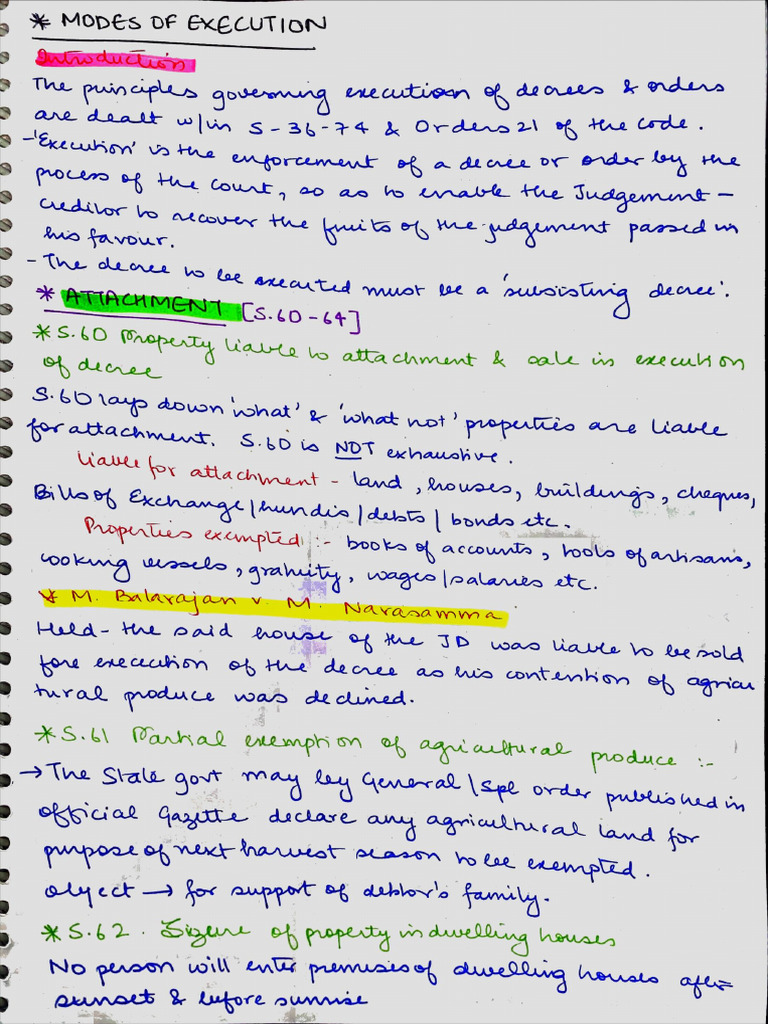 * MODES OF EXECUTION
Introduction
The principles governing execution of decrees & orders
are dealt w/in S-36-74 & Orders 21 of the code.
-'Execution' is the enforcement of a decree or order by the
process of the court, so as to enable the Judgement-
creditor to recover the fruits of the judgement passed in
his favour.
- The decree to be executed must be a 'subsisting decree'.
* ATTACHMENT [S.60-64]
* S.60 Property liable to attachment & sale in execution
of decree
S.60 lays down 'what' & 'what not' properties are liable
for attachment. S.60 is NOT exhaustive.
Liable for attachment - land, houses, buildings, cheques,
Bills of Exchange/hundis/debts/bonds etc.
Properties exempted :- books of accounts, tools of artisans,
cooking vessels, gratuity, wages/salaries etc.
* M. Balarajan v. M. Narasamma
Held- the said house of the JD was liable to be sold
fore execution of the decree as his contention of agricu
tural produce was declined.
* S.61 Partial exemption of agricultural produce :-
→ The State govt may by General/Spl order published in
official Gazette declare any agricultural land for
purpose of next harvest season to be exempted.
object → for support of debtor's family.
* S.62. Sizure of property in dwelling houses
No person will enter premises of dwelling houses after
sunset & before sunrise